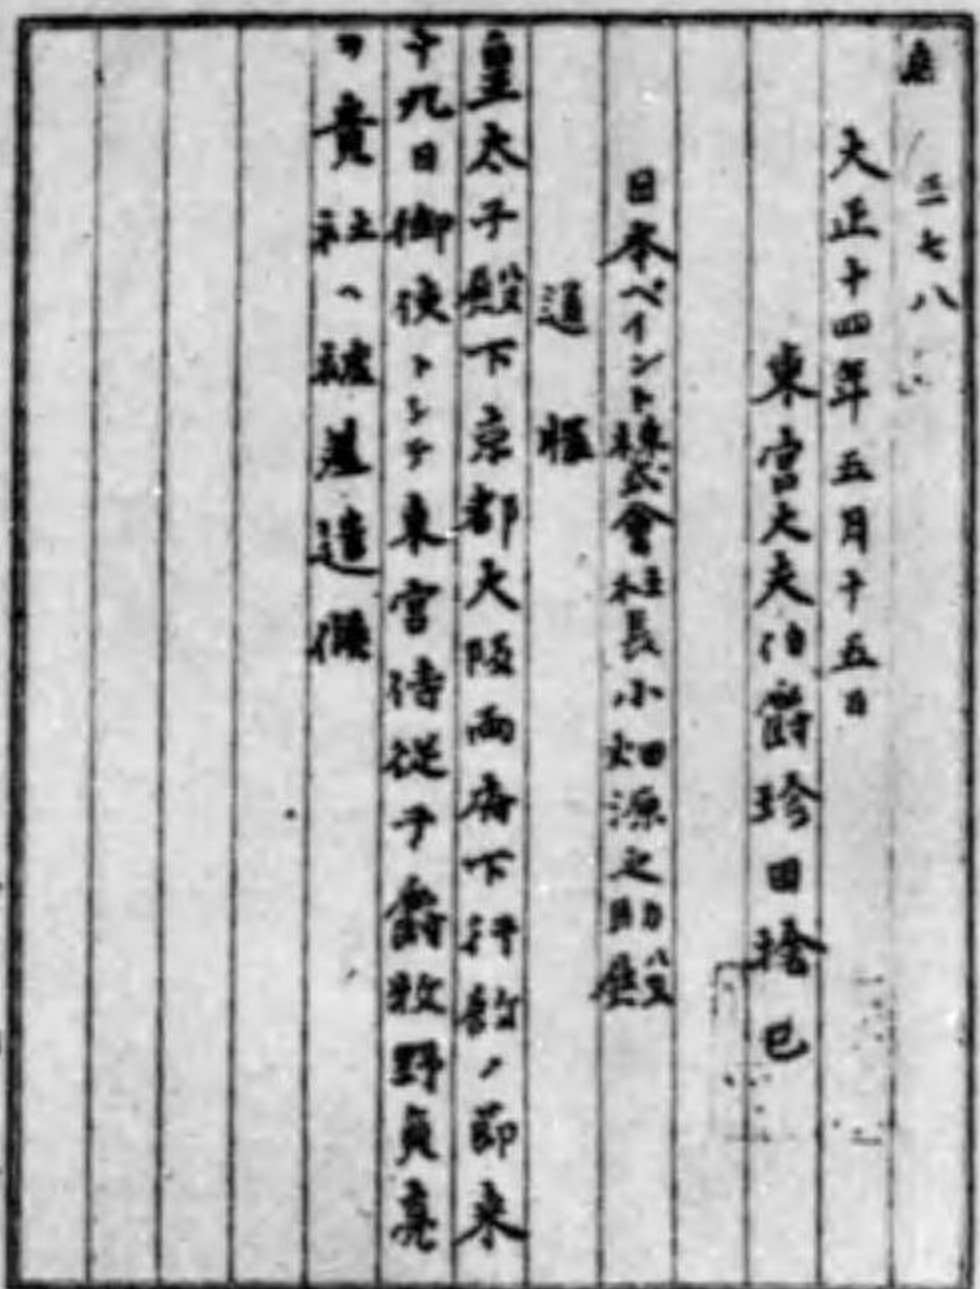 三七八
大正十四年五月十五日
東宮大夫伯爵珍田捨巳
日本ペイント株式會社長小畑源之助殿
通牒
皇太子殿下京都大阪兩府下行啓ノ節来
十九日御使トシテ東宮侍從子爵牧野貞亮
ヲ貴社ヘ被差遣候